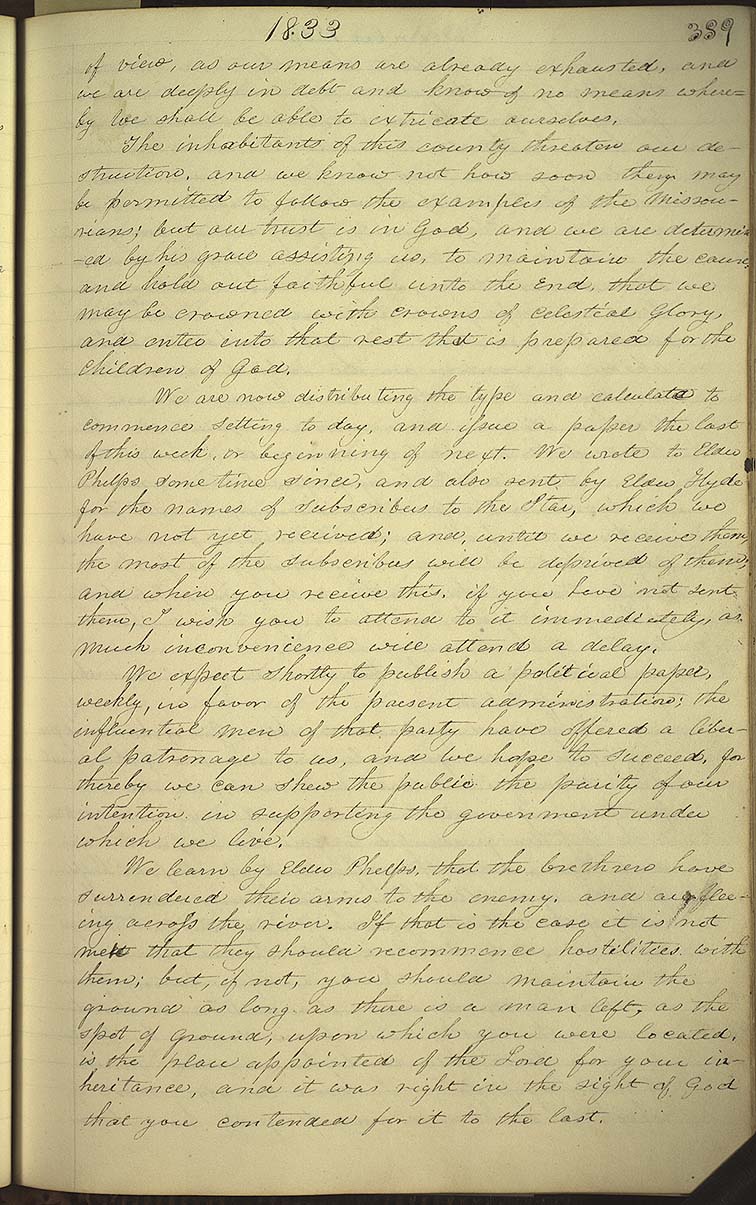 1833 389
of view, as our means are already exhausted, and
we are deeply in debt and know of no means where=
by we shall be able to extricate ourselves.
The inhabitants of this county threaten our de-
struction, and we know not how soon they may
be permitted to follow the examples of the Missou-
rians; but our trust is in God, and we are determin
-ed by his grace assisting us, to maintain the cause
and hold out faithful unto the End, that we
may be crowned with crowns of celestial Glory,
and enter into that rest that is prepared for the
Children of God.
We are now distributing the type and calculate to
commence setting to day, and issue a paper the last
of this week, or beginning of next. We wrote to Elder
Phelps some time since, and also sent by Elder Hyde
for the names of subscribers to the Star, which we
have not yet received; and, until we receive them,
the most of the subscribers will be deprived of them;
and when you receive this, if you have not sent
them, I wish you to attend to it immediately, as
much inconvenience will attend a delay.
We expect shortly to publish a political paper,
weekly, in favor of the present administration; the
influential men of that party have offered a liber-
al patronage to us, and we hope to succeed, for
thereby we can shew the public the purity of our
intention in supporting the government under
which we live.
We learn by Elder Phelps, that the brethren have
surrendered their arms to the enemy, and are flee-
ing across the river. If that is the case it is not
meet that they should recommence hostilities with
them; but, if not, you should maintain the
ground as long as there is a man left, as the
spot of ground, upon which you were located,
is the place appointed of the Lord for your in-
heritance, and it was right in the sight of God
that you contended for it to the last.